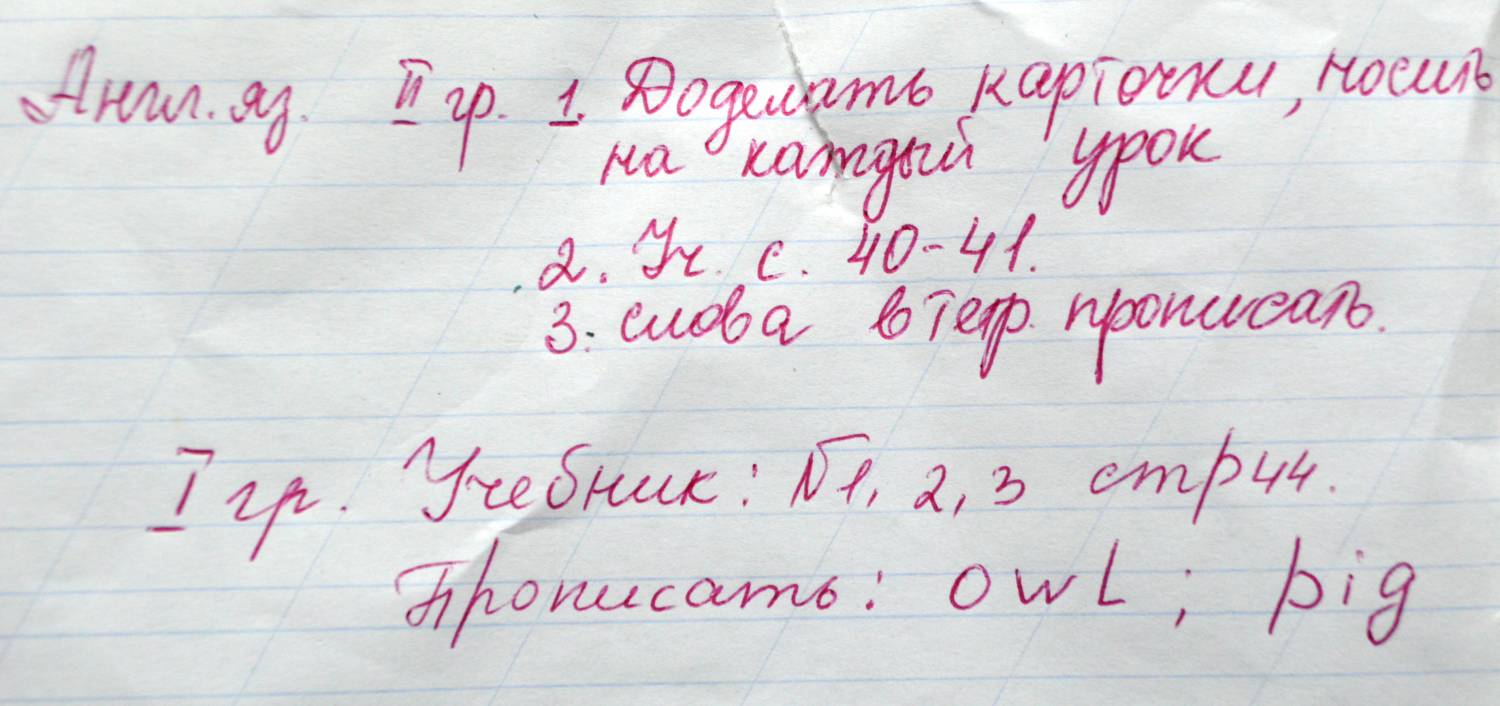 Англ. яз. II гр. 1. Доделать карточки, носить
на каждый урок
2. Уч. с. 40-41.
3. слова в тетр. прописать.
I гр. Учебник: №1, 2, 3 стр 44.
Прописать: owl ; pig